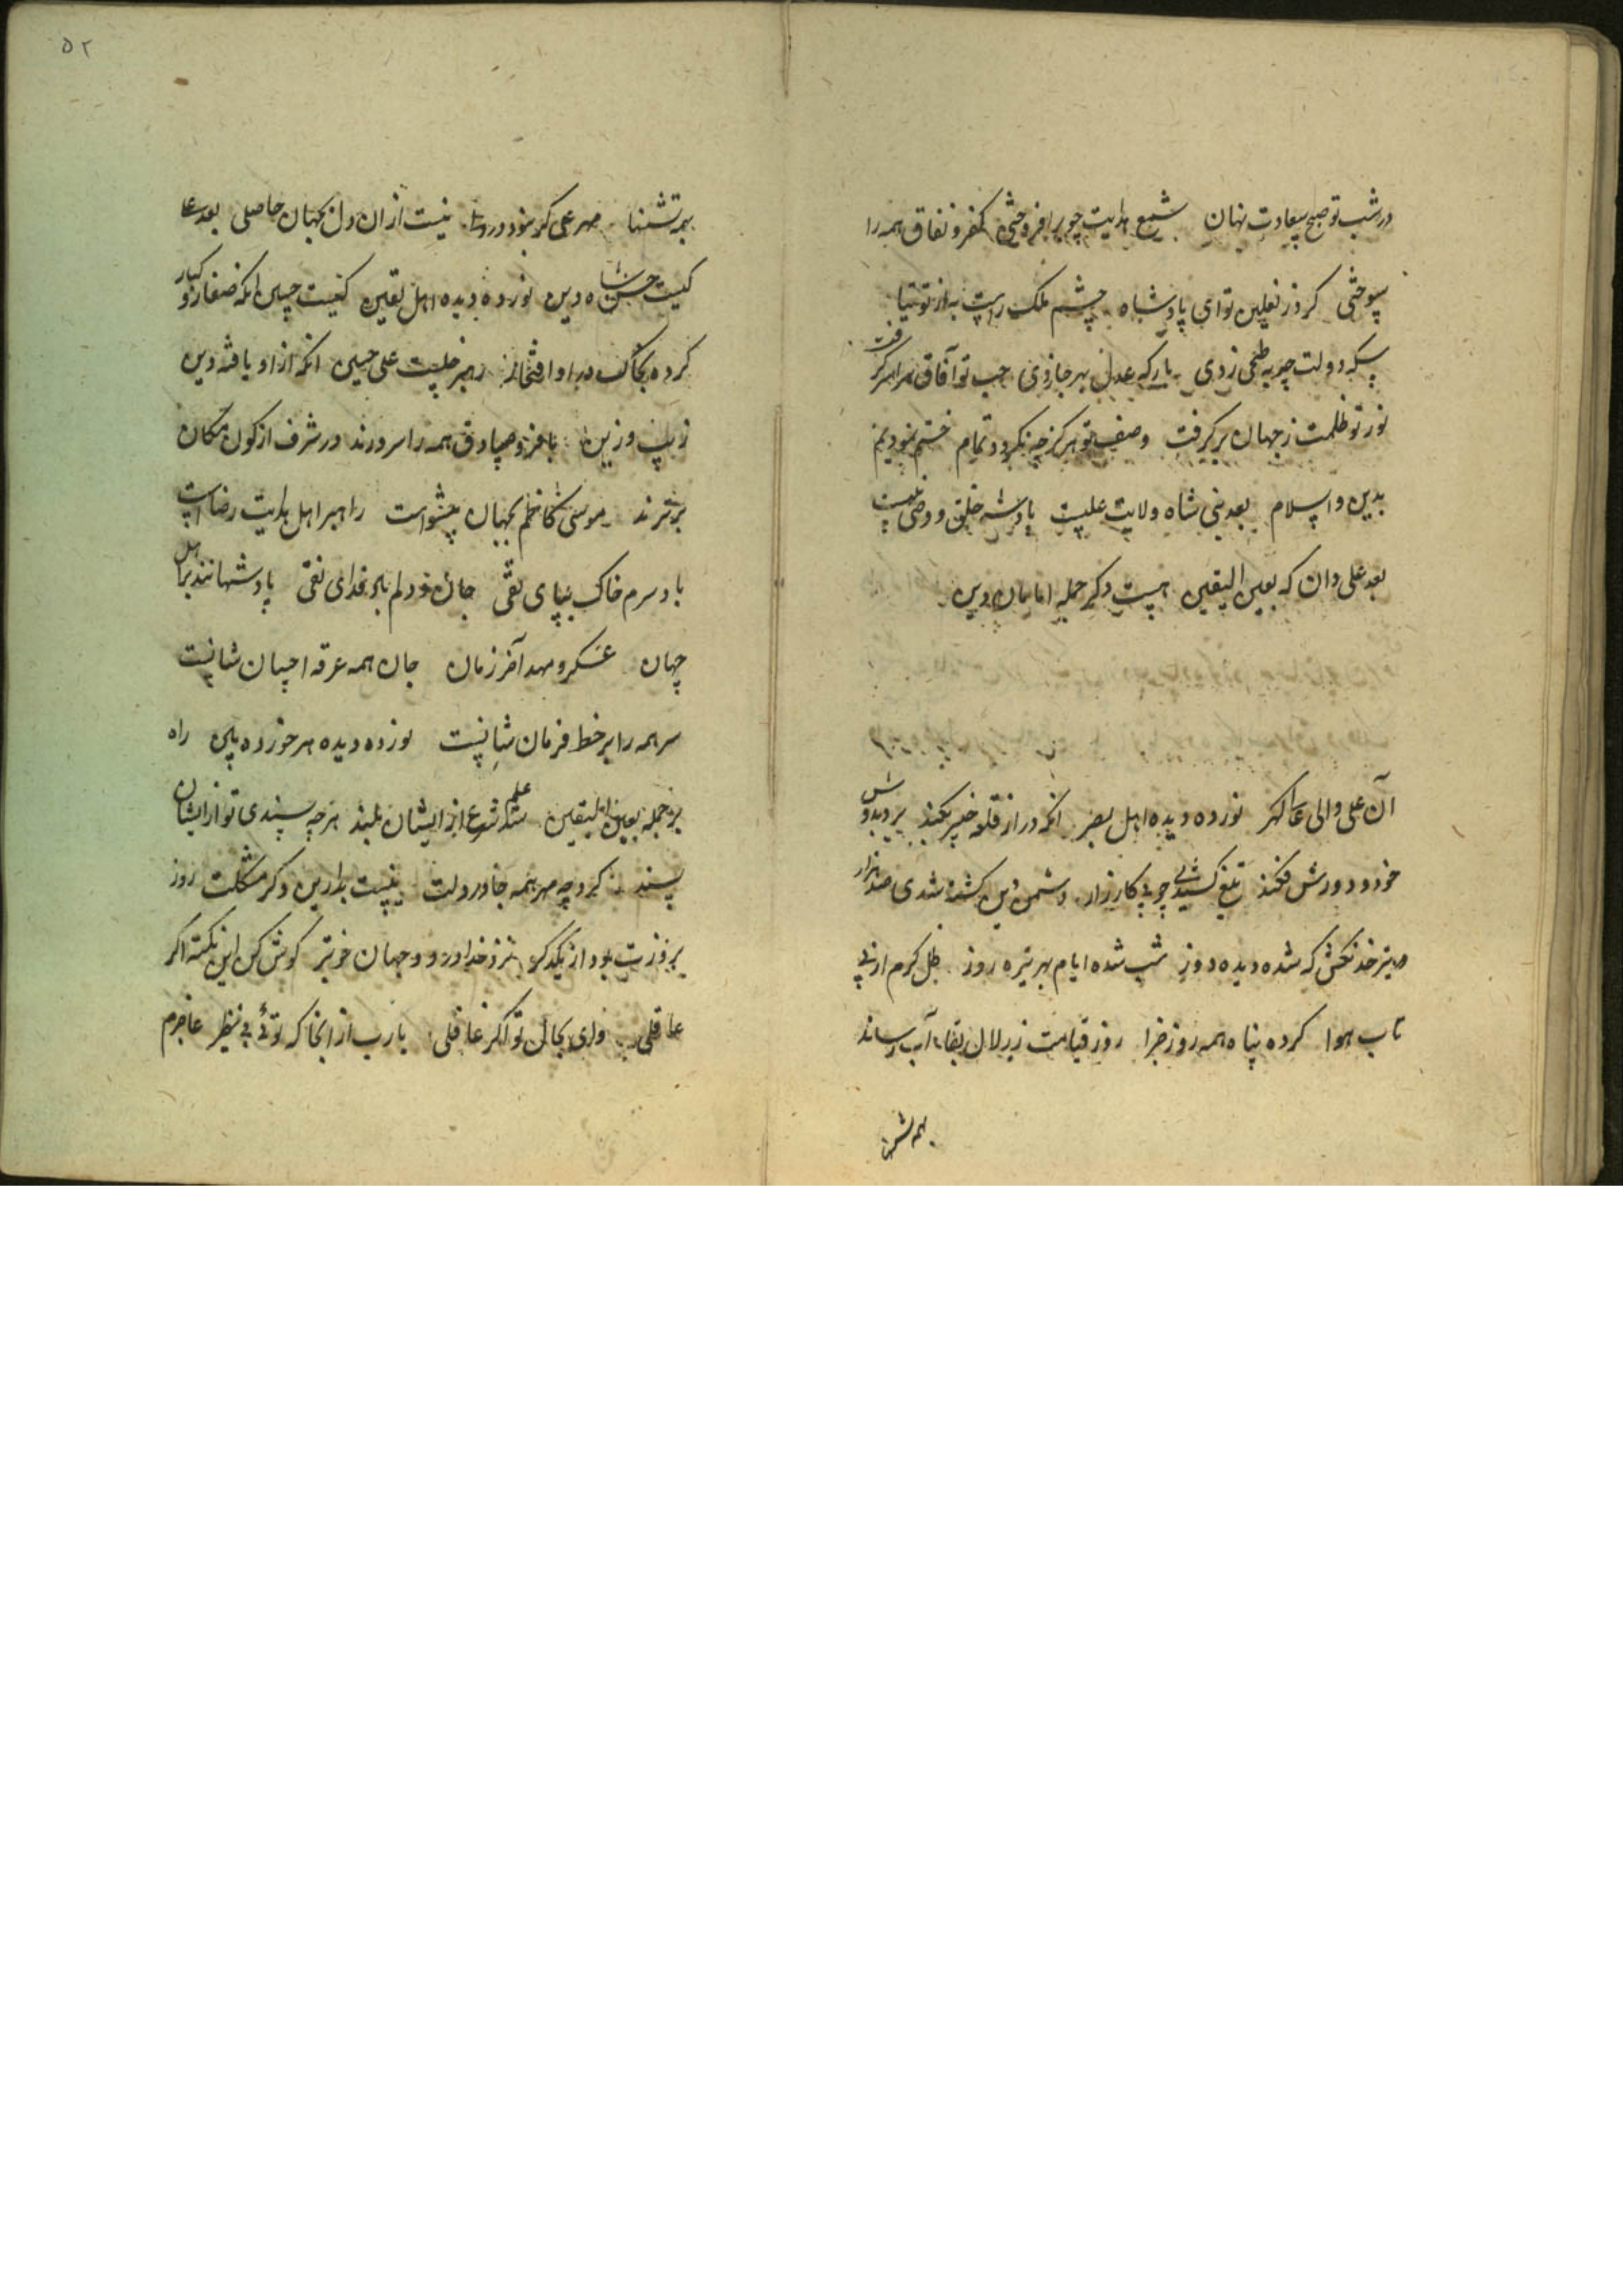 ۵۲
در شب تو صبح سعادت نهان شمع هدایت چو برافروختی کفر و نفاق همه را
سوختی کرد ز نعلین تو ای پادشاه چشم ملک راست به از توتیا
سکه دولت چو به طحی زدی بارکه عدل بهر جا زدی حب تو آفاق سراسر کرفت
نور تو ظلمت ز جهان بر کرفت وصف تو هرکز چه نکردد تمام ختم نمودیم
بدین والسلام بعد نبی شاه ولایت علیست پادشه خلق و وصی نبیست
بعد علی دان که بعین الیقین هست دکر جمله امامان دین
آن علی والی عالی کهر نور ده دیده اهل بصر انکه در از قلعه خیبر بکند بر دو بدوش
خود و دورش فکند تیغ کشیدی چو پی کارزار دشمن دین کشته شدی صد هزار
خدنکش که شده دیده دوز شب شده ایام بهر تیره روز ظل کرم از پی
تاب هوا کرده پناه همه روز جزا روز قیامت ز زلال بقا آب رساند
همه تشن
بهمه تشنها مهر علی کر نبود در دلی نیست از ان دل بجهان حاصلی بعد علی
کیست حسن شاه دین نور ده دیده اهل یقین کیست حسین انکه صغار و کبار
کرده بخاک در او افتخار رهبر خلقست علی حسین انکه از او یافته دین
زیب و زین باقر و صادق همه را سرورند در شرف از کون و مکان
برترند موسی کاظم بجهان پیشواست راهبر اهل هدایت رضاست
باد سرم خاک بپای تقی جان و دلم باد فدای نقی پادشهانند بر اهل
جهان عسکر و مهد آخر زمان جان همه غرقه احسان شانست
سر همه را بر خط فرمان شانست نور ده دیده هر خورده بین راه
بر جمله بعین الیقین شد علم شرع از ایشان بلند هرچه پسندی تو از ایشان
پسند کرد چو مهر همه جا در دلت نیست بدارین دکر مشکلت روز
بروزت بود از یکدکر نزد خدا در دو جهان خوبتر کوش کن این نکته اکر
عاقلی وای بحال تو اکر غافلی یارب از انجا که توئی بی نظیر عاجزم